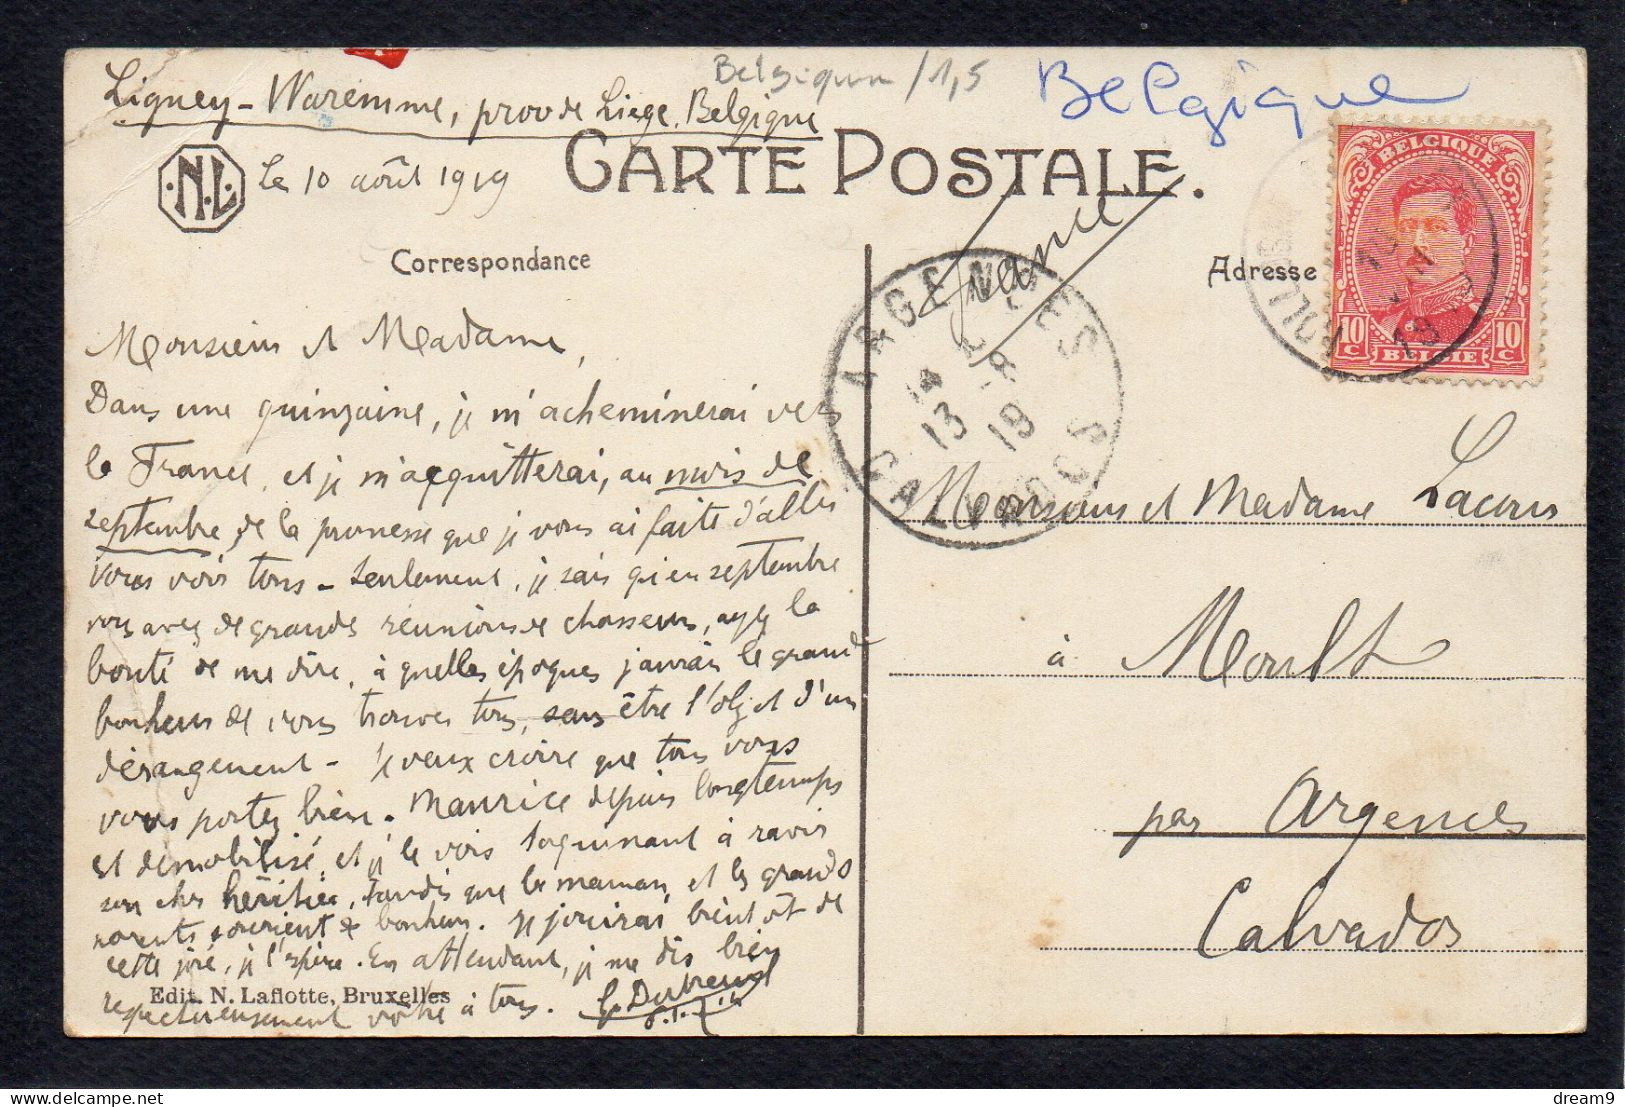 Belgique /1,5
Belgique
Ligney-Waremme, prov de Liege. Belgique
CARTE POSTALE.
N.L.
Le 10 août 1919
France
Correspondance
Adresse
BELGIQUE
10 C
10 C
BELGIE
ARGENCES
13 - 8
19
CALVADOS
Monsieur et Madame,
Dans une quinzaine, je m'acheminerai vers
la France, et je m'acquitterai, au mois de
septembre, de la promesse que je vous ai faite d'aller
vous voir tous - Seulement, je sais qu'en septembre
vous avez de grandes réunions de chasseurs, ayez la
bonté de me dire, à quelles époques j'aurais le grand
bonheur de vous trouver tous, sans être l'objet d'un
dérangement - Je veux croire que tous vous
vous portez bien. Maurice depuis longtemps
est démobilisé, et je le vois taquinant à ravir
son cher héritier, tandis que la maman et les grands
parents sourient de bonheur. Je jouirai bientôt de
cette joie, je l'espère. En attendant, je me dis bien
respectueusement vôtre à tous.
Edit. N. Laflotte, Bruxelles
Monsieur et Madame Lacour
à Moult
par Argences
Calvados
delcampe.net
dream9